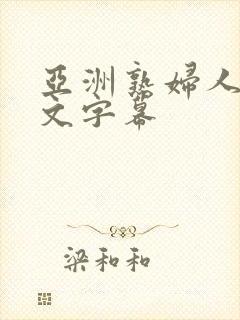 亞洲熟婦人
文字幕
梁和和